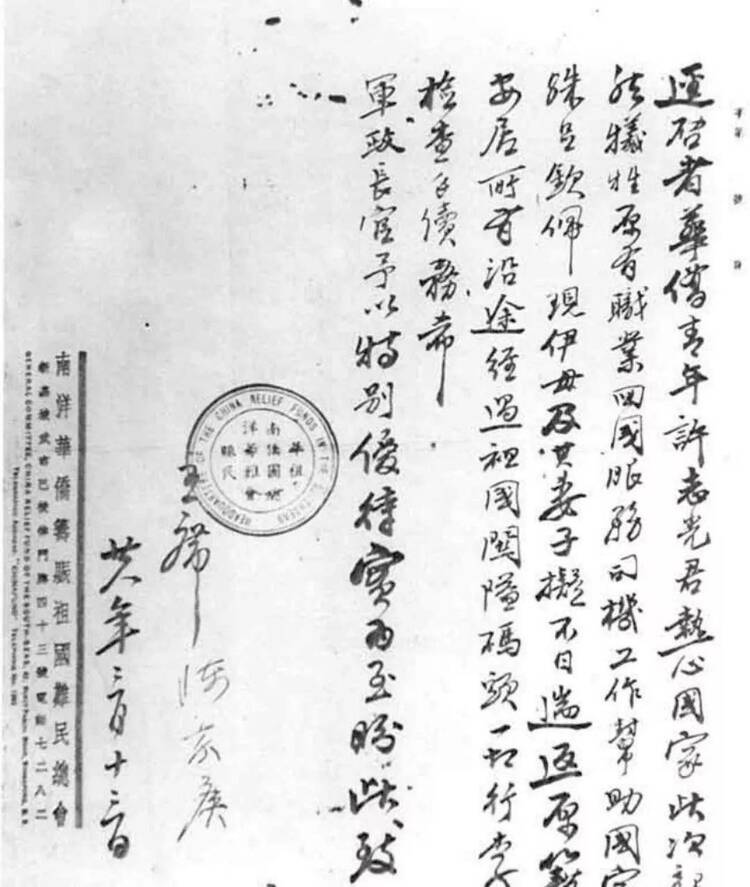 字第 號 
逕啓者華僑青年許志光君熱心國家此次
然犧牲原有職業回國服務司機工作幫助國家
殊足欽佩現伊母及其妻子擬不日遄返原籍
安居所有沿途經過祖國關隘碼頭一切行李
檢查手續務希
軍政長官予以特別優待實為至盼此致
主席陳嘉庚
廿八年三月十三日
HEADQUARTERS OF THE CHINA RELIEF FUNDS IN THE
南洋華僑籌賑祖國難民總會
新嘉坡武吉巴梳律門牌四十三號電話七二八二
GENERAL COMMITTEE, CHINA RELIEF FUND OF THE SOUTH-SEAS, 43, BUKIT PASOH ROAD, SINGAPORE, S. S.
TELEGRAPHIC ADDRESS: "CHINAFUND"